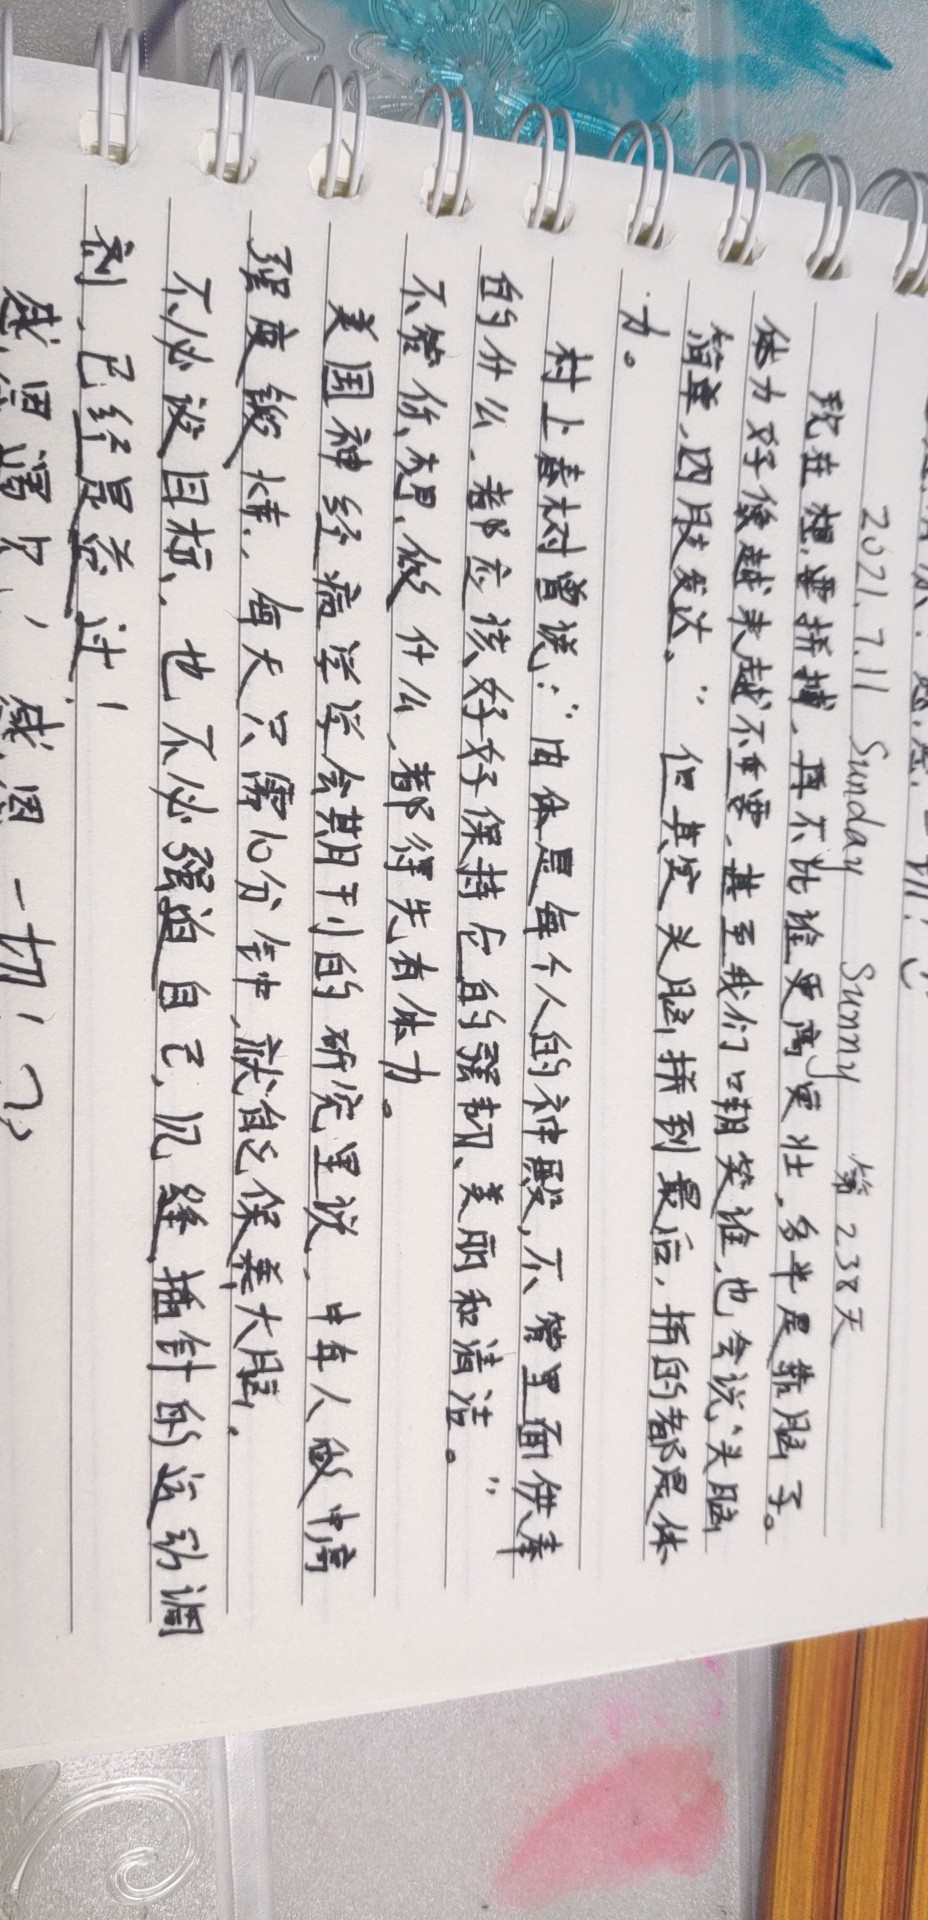 2021.7.11 Sunday Sunny 第238天
现在想要拼搏,再不比谁更高更壮,多半是靠脑子。
体力好像越来越不重要,甚至我们嘲笑谁,也会说“头脑
简单,四肢发达。”但其实头脑拼到最后,拼的都是体
力。
村上春树曾说:“肉体是每个人的神殿,不管里面供奉
的什么,都应该好好保持它的强韧、美丽和清洁。”
不管你想做什么,都得先有体力。
美国神经病学学会期刊的研究里说,中年人做中高
强度锻炼,每天只需10分钟,就能保养大脑。
不必设目标,也不必强迫自己,见缝插针的运动调
剂,已经是 过!
感恩 ,感恩一切!